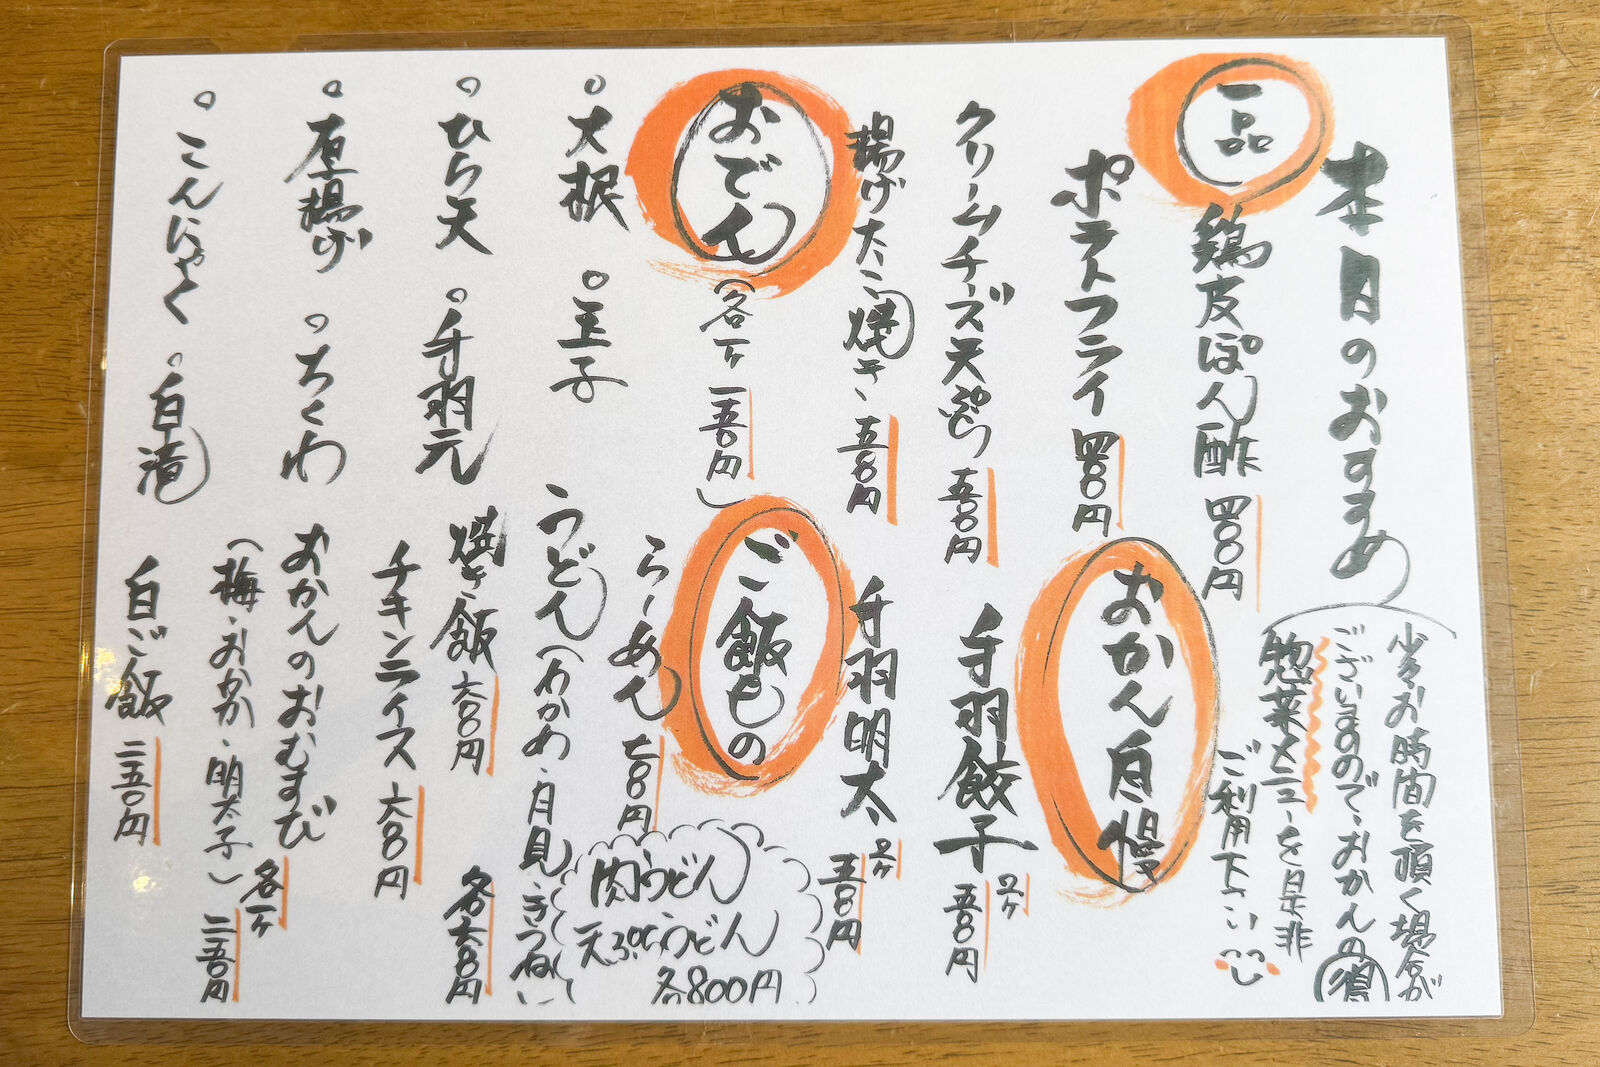 本月のおすすめ
少々お時間を頂く場合が
ございますので、おかんの
惣菜メニューを是非
ご利用下さい
一品
鶏皮ぽん酢 四〇〇円
ポテトフライ 四〇〇円
クリームチーズ天ぷら 五〇〇円
揚げたこ焼き 五〇〇円
おかん自慢
手羽餃子 2ヶ 五〇〇円
手羽明太 2ヶ 五〇〇円
おでん
(各一ヶ 一五〇円)
大根
玉子
ひら天
手羽元
厚揚げ
ちくわ
こんにゃく
白滝
ご飯もの
らーめん 七〇〇円
うどん(わかめ・月見・きつね)
各六〇〇円
肉うどん
天ぷらうどん
各800円
焼き飯 六〇〇円
チキンライス 六〇〇円
おかんのおむすび 各一ヶ
(梅・おかか・明太子) 二五〇円
白ご飯 二五〇円